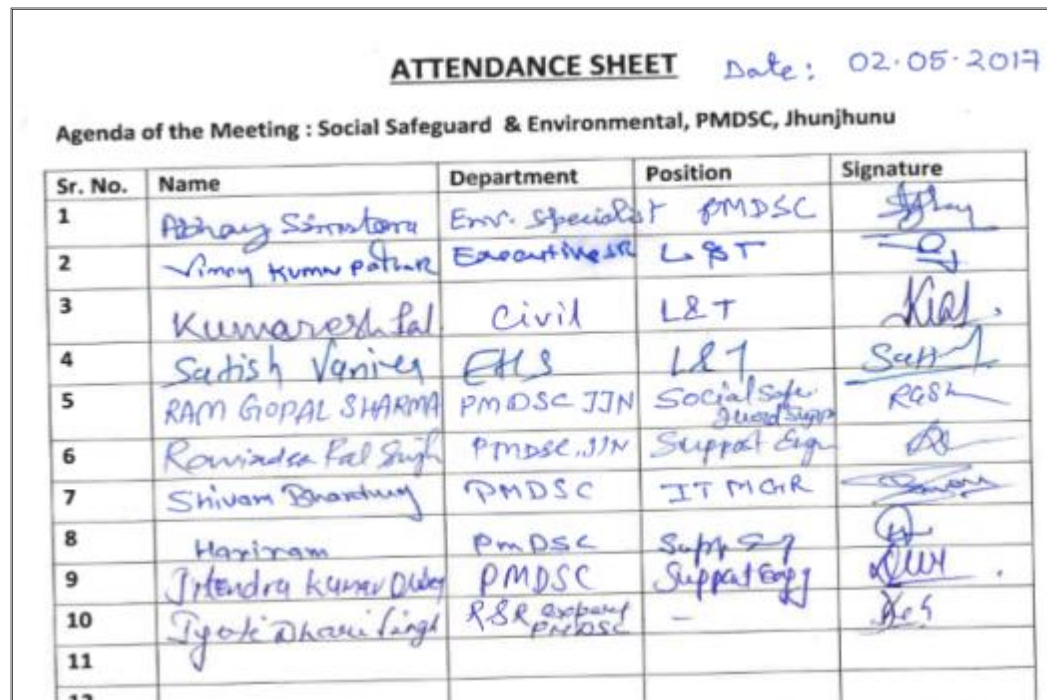 ATTENDANCE SHEET Date: 02.05.2017
Agenda of the Meeting : Social Safeguard & Environmental, PMDSC, Jhunjhunu
Sr. No. Name Department Position Signature
1 Abhay Env. Specialist PMDSC
2 Vinay Kumar Pathak Executive SR L&T
3 Kumaresh Pal Civil L&T
4 Satish EHS L&T
5 RAM GOPAL SHARMA PMDSC JJN Social Safe
guard Supp RGSh
6 Pal Singh PMDSC, JJN Support Engr
7 Shivam PMDSC IT MGR
8 Hariram PMDSC Supp
9 Jitendra Kumar Dubey PMDSC Support Engg
10 Jyoti Dhari Singh R&R expert
PMDSC -
11
12